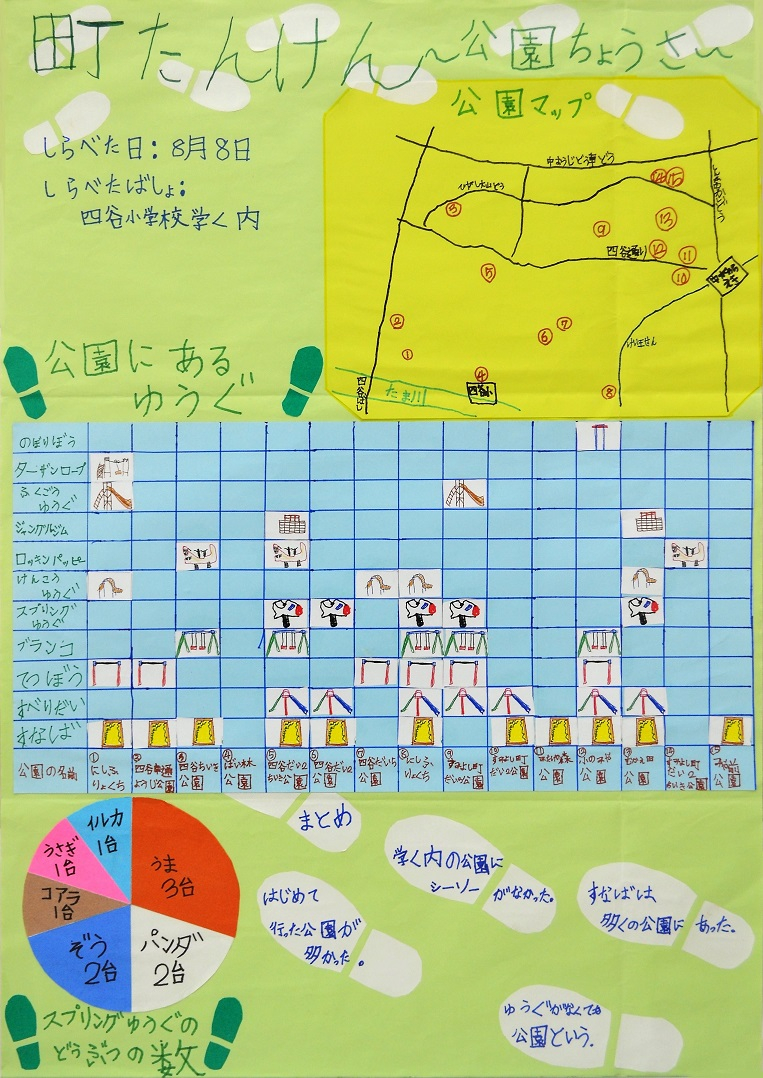 町たんけん〜公園ちょうさ〜
しらべた日：8月8日
しらべたばしょ：
四谷小学校学く内
公園マップ
四谷通り
けい王せん
四谷ばし
たま川
四谷小
①
②
③
④
⑤
⑥
⑦
⑧
⑨
⑩
⑪
⑫
⑬
⑭
⑮
公園にある
ゆうぐ
のぼりぼう
ターザンロープ
ふくごう
ゆうぐ
ジャングルジム
ロッキンパッピー
けんこう
ゆうぐ
スプリング
ゆうぐ
ブランコ
てつぼう
すべりだい
すなば
公園の名前
①にしふ
りょくち
②四谷
ようじ公園
③四谷ちいき
公園
④
公園
⑤四谷だい2
ちいき公園
⑥四谷だい2
公園
⑦四谷だいち
公園
⑧にしふ
りょくち
⑨すみよし町
だいか公園
⑩すみよし町
だい2公園
⑪
公園
⑫
公園
⑬
公園
⑭
だい2
ちいき公園
⑮
公園
うま
3台
パンダ
2台
ぞう
2台
コアラ
1台
うさぎ
1台
イルカ
1台
スプリングゆうぐの
どうぶつの数
まとめ
はじめて
行った公園が
多かった。
学く内の公園に
シーソーがなかった。
すなばは、
多くの公園にあった。
ゆうぐがなくても
公園という。